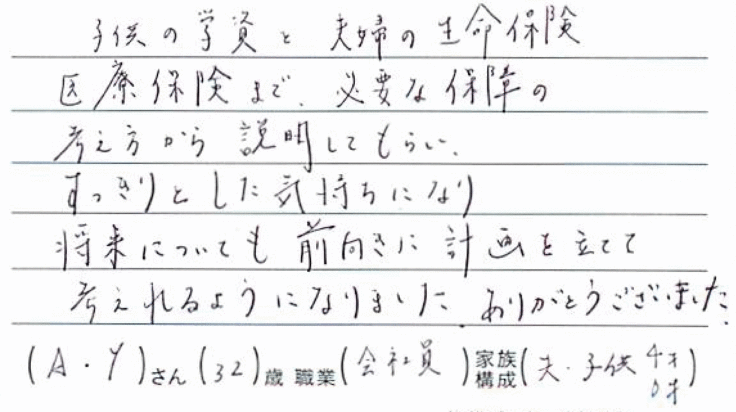 子供の学資と 夫婦の生命保険
医療保険まで、必要な保障の
考え方から説明してもらい、
すっきりとした気持ちになり
将来についても前向きに計画を立てて
考えれるようになりました。ありがとうございました。
(A・Y)さん(32)歳 職業(会社員)家族構成(夫・子供 4才 0才)